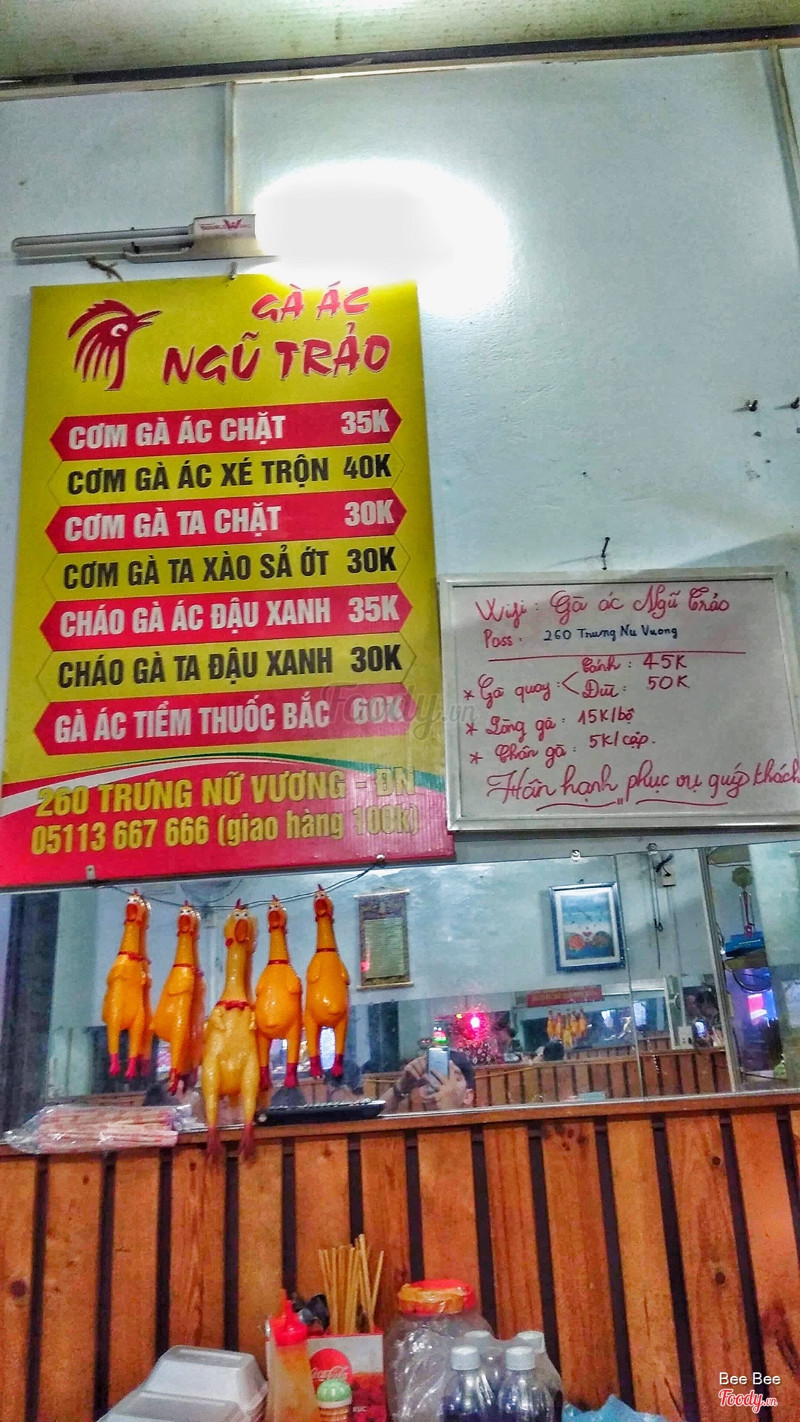 GÀ ÁC
NGŨ TRẢO
CƠM GÀ ÁC CHẶT 35K
CƠM GÀ ÁC XÉ TRỘN 40K
CƠM GÀ TA CHẶT 30K
CƠM GÀ TA XÀO SẢ ỚT 30K
CHÁO GÀ ÁC ĐẬU XANH 35K
CHÁO GÀ TA ĐẬU XANH 30K
GÀ ÁC TIỀM THUỐC BẮC 60K
260 TRƯNG NỮ VƯƠNG - ĐN
05113 667 666 (giao hàng 100K)
Wifi : Gà ác Ngũ Trảo
Pass : 260 Trưng Nu Vuong
* Gà quay : < Cánh : 45K
Đùi : 50K
* Lòng gà : 15K/bộ
* Chân gà : 5K/cặp.
Hân hạnh phục vụ quý khách
Foody.vn
Coca-Cola
Bee Bee
Foody.vn